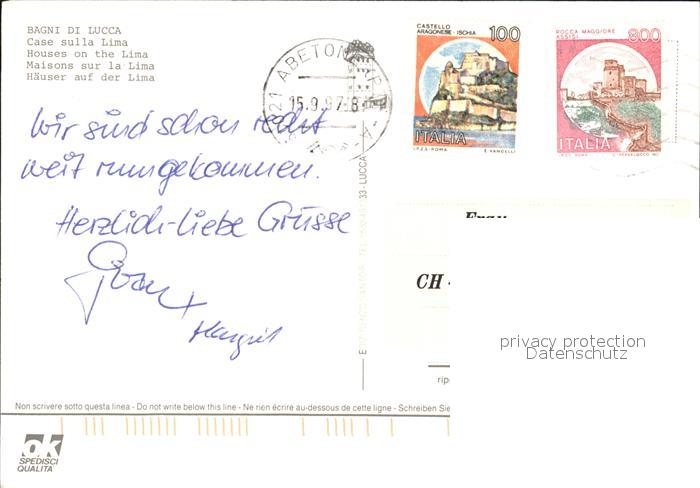 BAGNI DI LUCCA
Case sulla Lima
Houses on the Lima
Maisons sur la Lima
Häuser auf der Lima
CASTELLO
ARAGONESE - ISCHIA
100
ITALIA
I.P.Z.S. - ROMA E. VANGELLI
ROCCA MAGGIORE
ASSISI
800
ITALIA
I.P.Z.S. - ROMA
ABETONE
15.9.97-8
Wir sind schon recht
weit rumgekommen.
Herzlich-liebe Grüsse
+ Margrit
33-LUCCA
Frau
CH -
privacy protection
Datenschutz
rip
Non scrivere sotto questa linea - Do not write below this line - Ne rien écrire au-dessous de cette ligne - Schreiben Sie
ok
SPEDISCI
QUALITA'